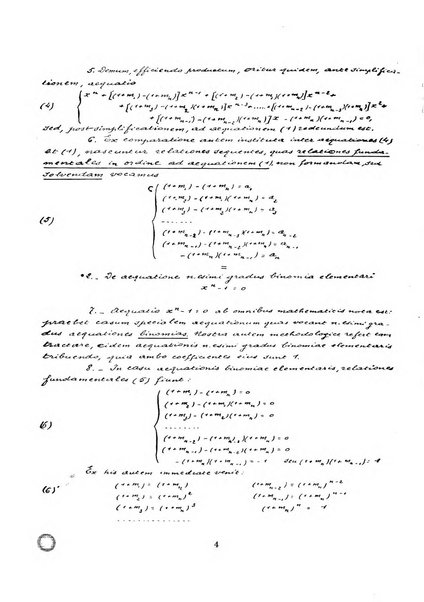 5. Demum, efficiendo productum, oritur quidem, ante simplifica-
tionem, aequatio
(4) { x^n + [(1+m_1)-(1+m_n)]x^{n-1} + [(1+m_2)-(1+m_1)(1+m_n)]x^{n-2}+
+[(1+m_3)-(1+m_2)(1+m_n)]x^{n-3}+.....+[(1+m_{n-2})-(1+m_{n-3})(1+m_n)]x^2+
+[(1+m_{n-1})-(1+m_{n-2})(1+m_n)]x-(1+m_n)(1+m_{n-1})=0,
sed, post simplificationem, ad aequationem (1) redeundum est.
6. Ex comparatione autem instituta inter aequationes (4)
et (1), nascuntur relationes sequentes, quas relationes funda-
mentales in ordine ad aequationem (1) non formandam, sed
solvendam vocamus
(1+m_1)-(1+m_n)=a_1
(1+m_2)-(1+m_1)(1+m_n)=a_2
(1+m_3)-(1+m_2)(1+m_n)=a_3
(5) .......
(1+m_{n-2})-(1+m_{n-3})(1+m_n)=a_{n-2}
(1+m_{n-1})-(1+m_{n-2})(1+m_n)=a_{n-1}
-(1+m_n)(1+m_{n-1})=a_n
=
2. - De aequatione n.esimi gradus binomia elementari
x^n-1=0
7. - Aequatio x^n-1=0 ab omnibus mathematicis nota est:
praebet casum specialem aequationum quas vocant n.esimi gra-
dus aequationes binomias. Nostra autem methodologice refert eam
tractare, eidem aequationis n.esimi gradus binomiae elementaris
tribuendo, quia ambo coefficentes eius sunt 1.
8. - In casu aequationis binomiae elementaris, relationes
fundamentales (5) fiunt:
(1+m_1)-(1+m_n)=0
(1+m_2)-(1+m_1)(1+m_n)=0
(1+m_3)-(1+m_2)(1+m_n)=0
(6) .......
(1+m_{n-2})-(1+m_{n-3})(1+m_n)=0
(1+m_{n-1})-(1+m_{n-2})(1+m_n)=0
-(1+m_n)(1+m_{n-1})=-1 seu (1+m_n)(1+m_{n-1})=1
Ex his autem immediate venit:
(6)' (1+m_1)=(1+m_n) (1+m_{n-2})=(1+m_n)^{n-2}
(1+m_2)=(1+m_n)^2 (1+m_{n-1})=(1+m_n)^{n-1}
(1+m_3)=(1+m_n)^3 (1+m_n)^n = 1
..............
4